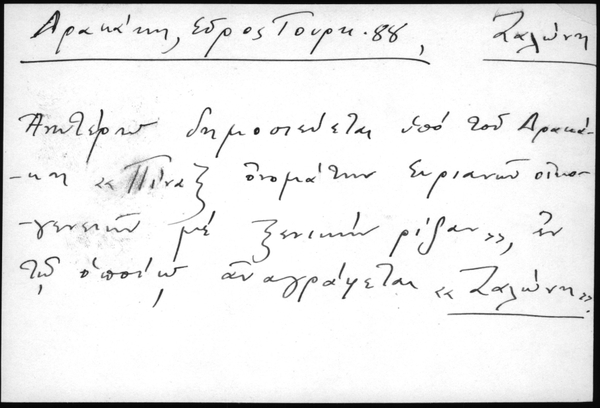 Δρακάκη, Σῦρος Τουρκ. 88, Ζαλώνη
Ἀνωτέρω δημοσιεύεται ὑπό τοῦ Δρακά-
-κη «Πίναξ ὀνομάτων Συριανῶν οἰκο-
-γενειῶν μέ ξενικήν ρίζαν», ἐν
τῷ ὁποίῳ ἀναγράφεται «Ζαλώνη».